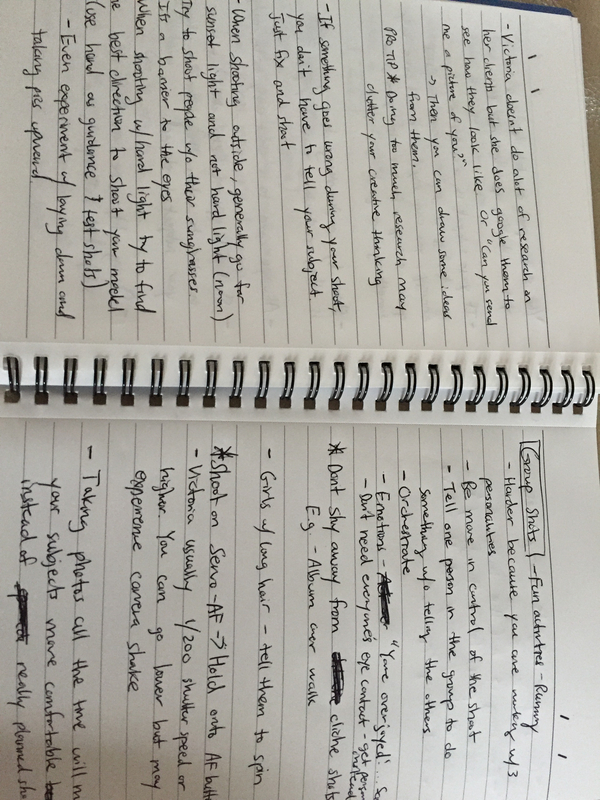 - Victoria doesn't do alot of research on
her clients but she does google them to
see how they look like. Or "Can you send
me a picture of you?"
→ Then you can draw some ideas
from them.
PRO TIP * Doing to much research may
clutter your creative thinking
- If something goes wrong during your shoot,
you don't have to tell your subject
just fix and shoot
- When shooting outside, generally go for
sunset light and not hard light (noon)
Try to shoot people w/o their sunglasses.
It's a barrier to the eyes
When shooting w/ hard light try to find
he best direction to shoot your model
(use hand as guidance & test shots)
- Even experiment w/ laying down and
taking pics upward
Group Shots - Fun activities - Running
- Harder because you are working w/ 3
personalities
- Be more in control of the shoot
- Tell one person in the group to do
something w/o telling the others
- Orchestrate
- Emotions - "You're overjoyed!...
- Don't need everyone's eye contact - get
* Don't shy away from cliche shots
E.g. - Album cover walk
- Girls w/ long hair - tell them to spin
* Shoot on Servo-AF → Hold onto AF butt
- Victoria usually 1/200 shutter speed or
higher. You can go lower but may
experience camera shake
- Taking photos all the time will m
your subjects more comfortable
instead of really planned sho